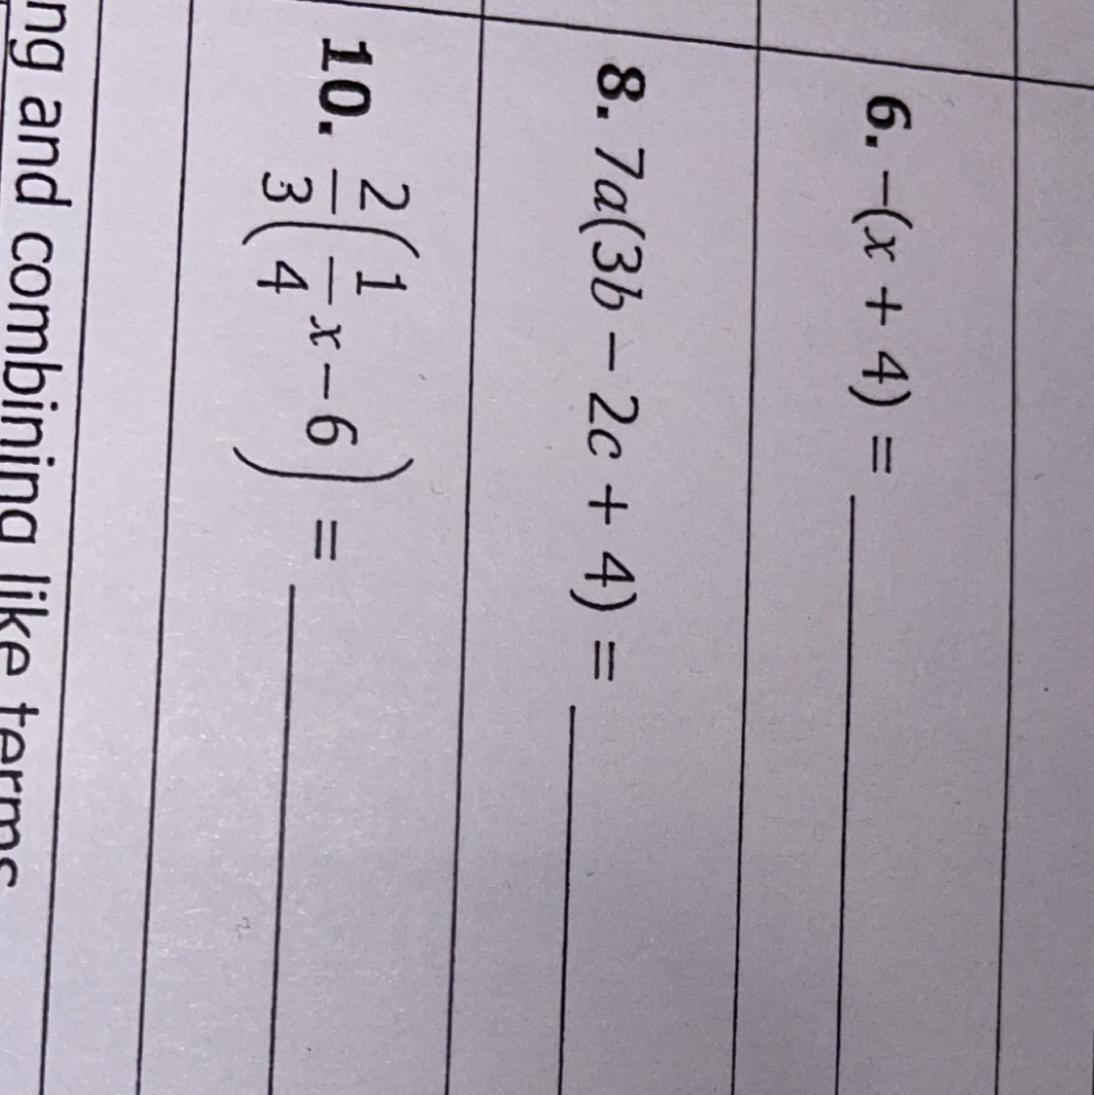 6. −(x + 4) = __________
8. 7a(3b − 2c + 4) = __________
10. 2/3(1/4 x − 6) = __________
and combining like terms